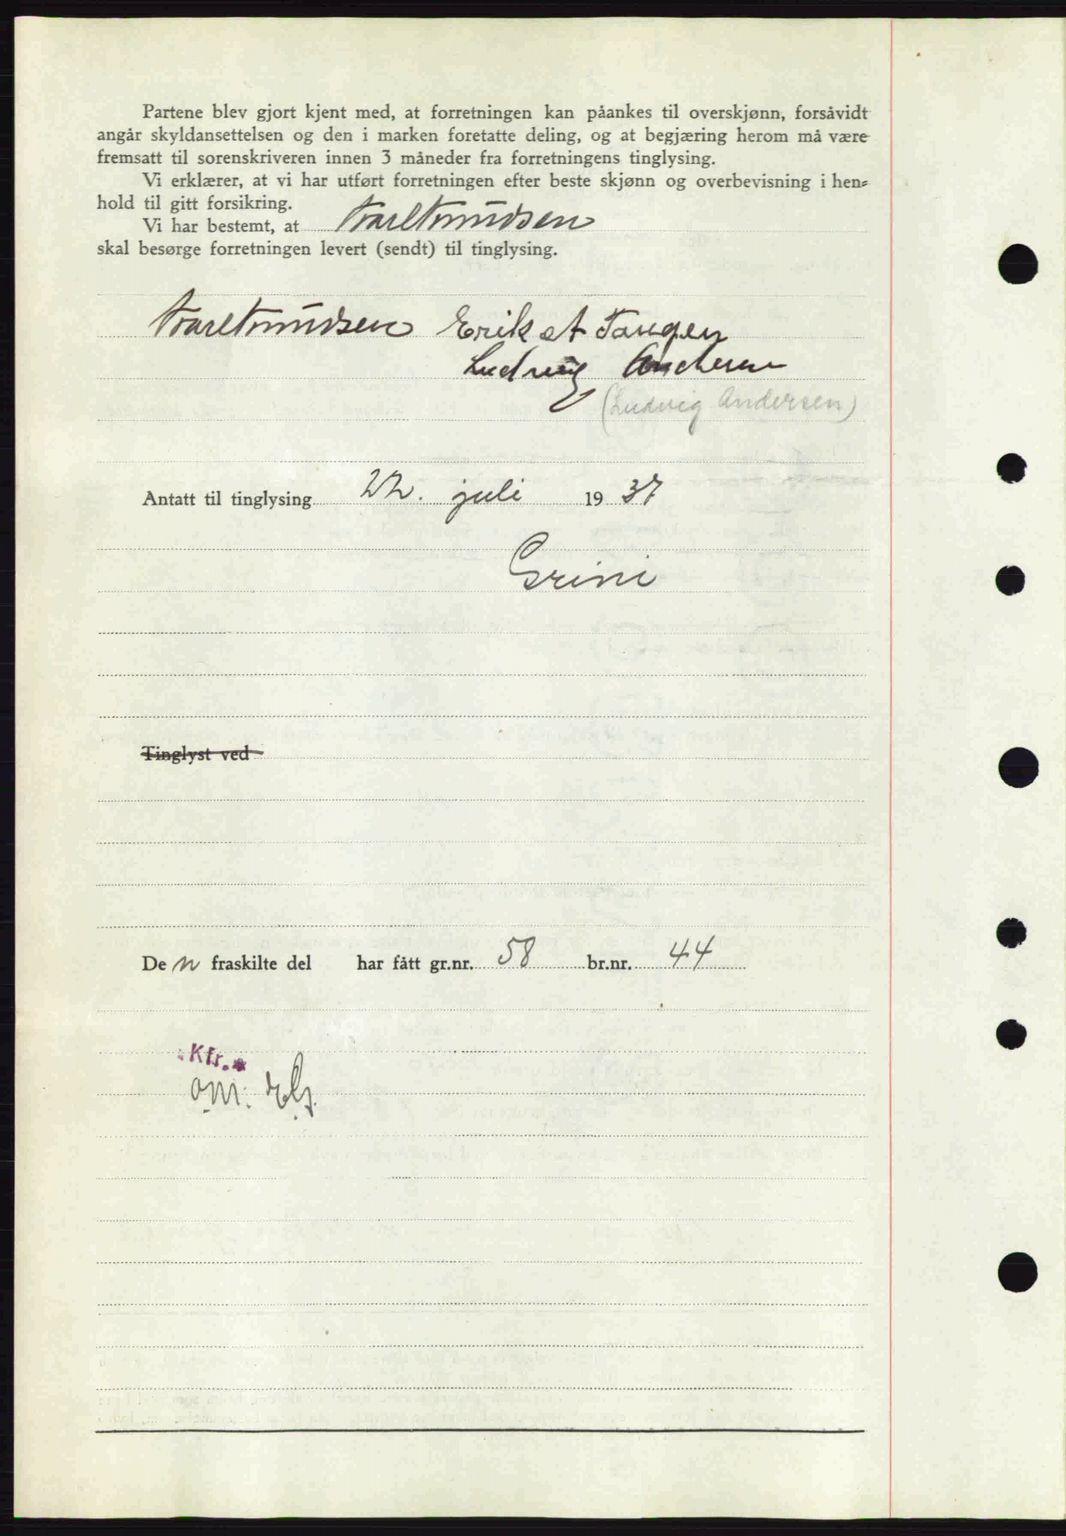 Partene blev gjort kjent med, at forretningen kan påankes til overskjønn, forsåvidt
angår skyldansettelsen og den i marken foretatte deling, og at begjæring herom må være
fremsatt til sorenskriveren innen 3 måneder fra forretningens tinglysing.
Vi erklærer, at vi har utført forretningen efter beste skjønn og overbevisning i hen-
hold til gitt forsikring.
Vi har bestemt, at
skal besørge forretningen levert (sendt) til tinglysing.
Erik A Tangen
Ludvig Andersen
(Ludvig Andersen)
Antatt til tinglysing 22. juli 1937
Grini
Tinglyst ved
De n fraskilte del har fått gr.nr. 58 br.nr. 44
Kfr.
om.